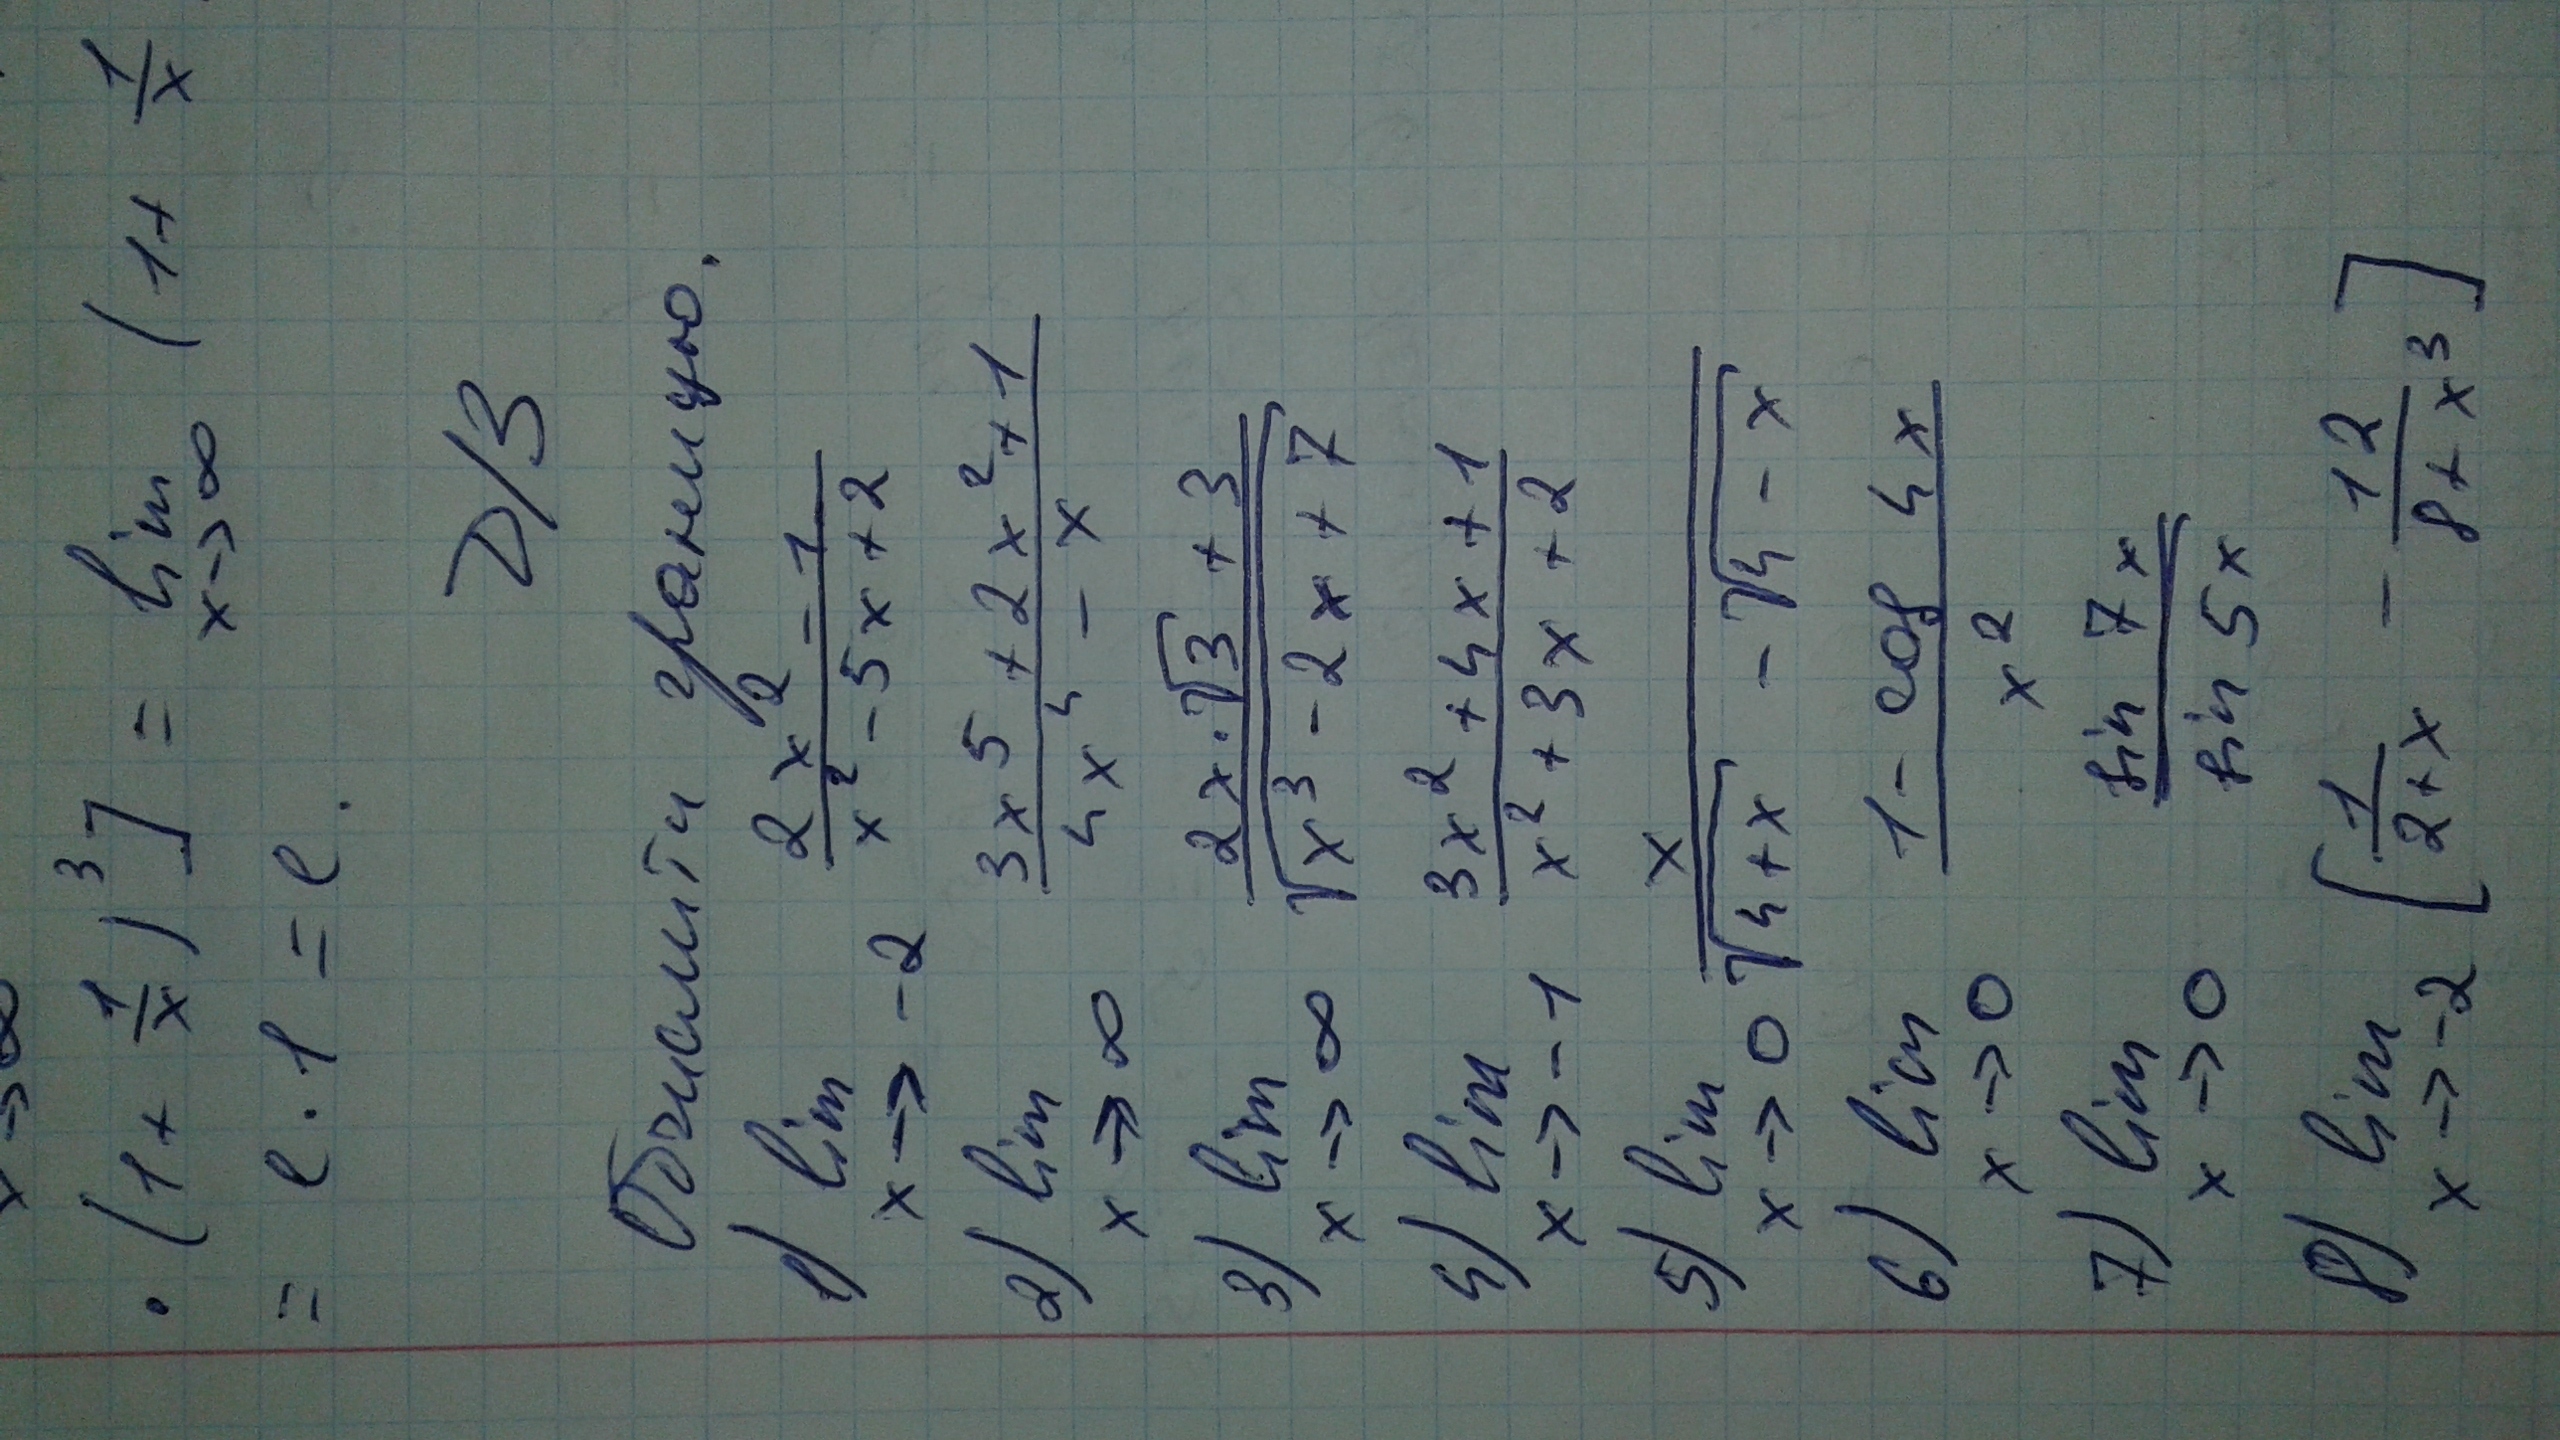 x→∞
· (1 + 1/x)^3] = lim x→∞ (1 + 1/x
= e · 1 = e.
Д/З
Обчислити границю.
1) lim x→-2 (2x^2 - 1)/(x^2 - 5x + 2)
2) lim x→∞ (3x^5 + 2x^2 + 1)/(4x^4 - x)
3) lim x→∞ (2x · √3 + 3)/√(x^3 - 2x + 7)
4) lim x→-1 (3x^2 + 4x + 1)/(x^2 + 3x + 2)
5) lim x→0 x/(√(4+x) - √(4-x))
6) lim x→0 (1 - cos 4x)/x^2
7) lim x→0 (sin 7x)/(sin 5x)
8) lim x→-2 [1/(2+x) - 12/(8+x^3)]